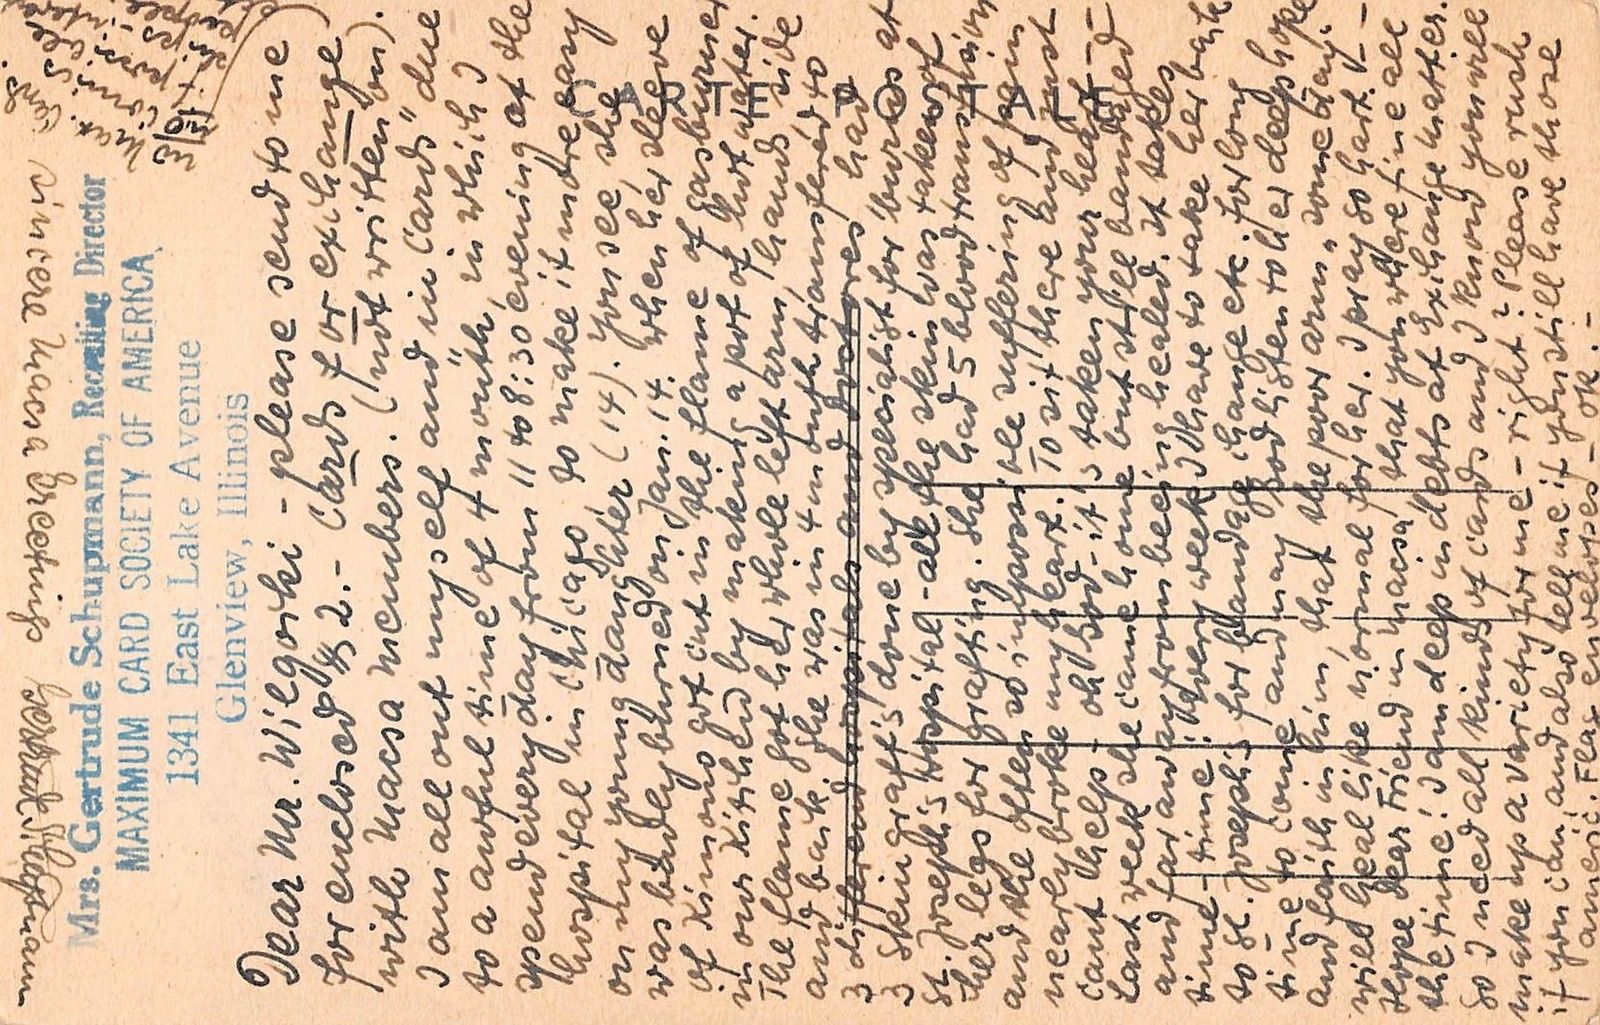 Mrs. Gertrude Schupmann, Recruiting Director
MAXIMUM CARD SOCIETY OF AMERICA
1341 East Lake Avenue
Glenview, Illinois
CARTE POSTALE
Dear Mr. Wilgorki - please send to me
for enclosed $ 2.- Cards for exchange
with Macsa members. (not written on).
I am all out myself and "in Cards" due
to a awful time of 4 month, in which I
spend every day from 11 to 8:30 evening at the
hospital in Chicago, to make it more easy
on my young daughter (14). You see she
was badly burned on Jan. 14. when her sleeve
of Kimono got cut in the flame of gasburner
in our Kitchen by making a pot of hot water.
The flame got her whole left arm, hand, side
and back. She was in 4 month transfered to
3 different hospitals and doctores had
3 skin graft's done by specialist for burns at
St. Joseph's Hospital - all the skin was taken of
her legs for grafting. She had 5 blood transfusion
and the often so impossible suffering of pain
nearly broke my heart. To sit there and just
cant help - oh God - it's taken your heart -
Last week she came home but still bandaged
and far away from beeing healed. It takes
time - time! Every week I have to take her back
to St. Joseph's for bandage change etc. for long
time to come and may God listen to her deep hope
and faith in him, that the poor arm, some day
will heal like normal for her. I pray so hard. -
Hope dear Friend in Macsa, that you where fine all
the time! I am deep in debts at Exchange matter.
So I need all kind of cards and I know you will
make up a variety for me - right? Please rush
if you can and also tell me if you still have those
Americ. Flag envelopes - OK. -
sincere Macsa Greetings Gertrud Schupmann